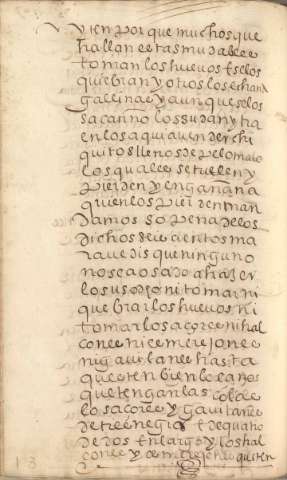 yten por que muchos que
hallan estas mudables
toman los huevos e se los
quiebran y otros los echan a
gallinas y aunque se los
sacan no los sudan y tra
en los aqui a vender chi
quitos llenos de pelo malo
los quales se tullen y
pierden y engañan a
quien los pierden man
damos so pena de los
dichos seiscientos ma
ravedis que ninguno
no sea osado a hazer
lo suso dicho ni tomar ni
quebrar los huevos ni
tomar los açores ni hal
cones ni esmerejones
ni gavilanes hasta
que esten bien los años
que tengan las colas
los açores y gavilanes
de tres negras e de quatro
de dos en largo y los hal
cones y esmerejones que ten